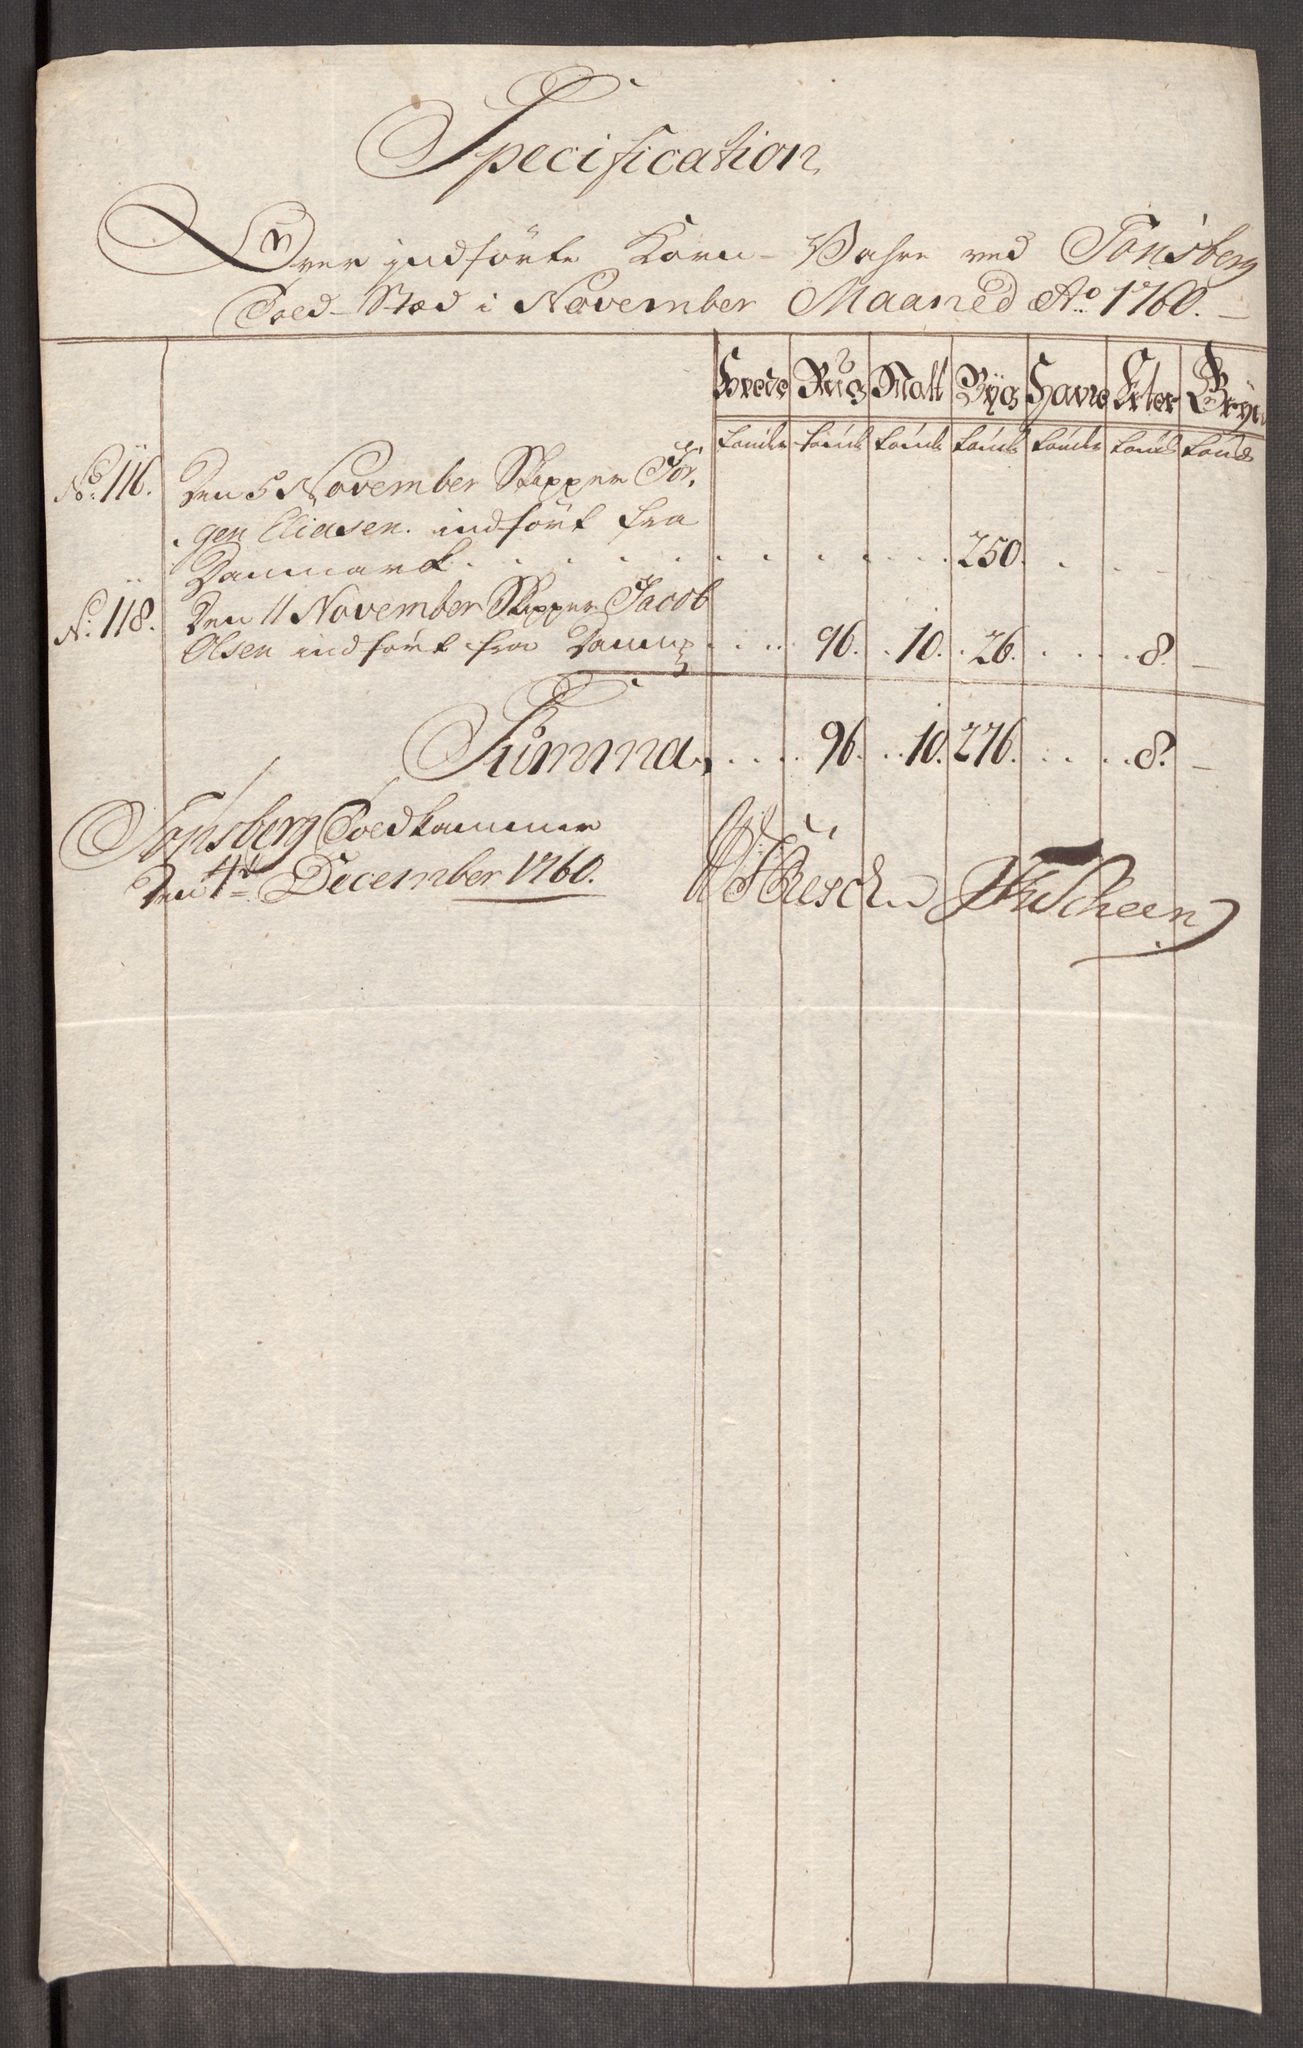 Specification
Over indförte Korn-Vahre ved Tönsberg
Toed-Stæd i November Maaned Ao 1760.
Hvede Rug Malt Byg Havre Erter Gryn
tönder tönde tönde tönde tönder tönd tönd
No. 116. Den 5 November Skipper Jör,
gen Eliasen indfört fra
Danmark . . . 250.
No. 118. Den 11 November Skipper Jacob
Olsen indfört fra Danm . . . 96. 10. 26. . . 8. —
Summa . . . 96. 10. 276. . . 8. —
Tönsberg Toedkammer
den 4de December 1760.